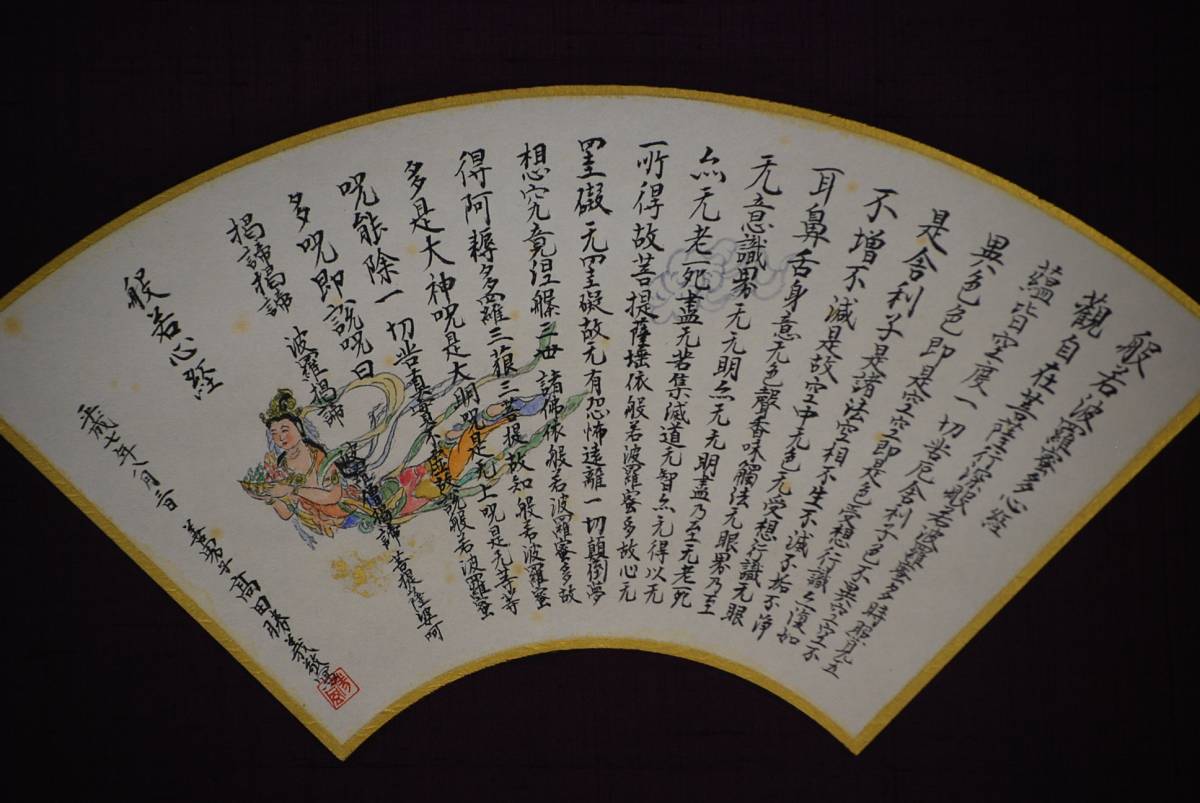 般若波羅蜜多心経
觀自在菩薩行深般若波羅蜜多時照見五
蘊皆空度一切苦厄舎利子色不異空空不
異色色即是空空即是色受想行識亦復如
是舎利子是諸法空相不生不滅不垢不浄
不増不減是故空中无色无受想行識无眼
耳鼻舌身意无色聲香味觸法无眼界乃至
无意識界无无明亦无无明盡乃至无老死
亦无老死盡无苦集滅道无智亦无得以无
所得故菩提薩埵依般若波羅蜜多故心无
罣礙无罣礙故无有恐怖遠離一切顛倒夢
想究竟涅槃三世諸佛依般若波羅蜜多故
得阿耨多羅三藐三菩提故知般若波羅蜜
多是大神呪是大明呪是无上呪是无等等
呪能除一切苦真實不虚故説般若波羅蜜
多呪即説呪曰
揭諦揭諦 波羅揭諦 波羅僧揭諦 菩提薩婆呵
般若心経
平成七年八月 善男子 高田勝義敬写